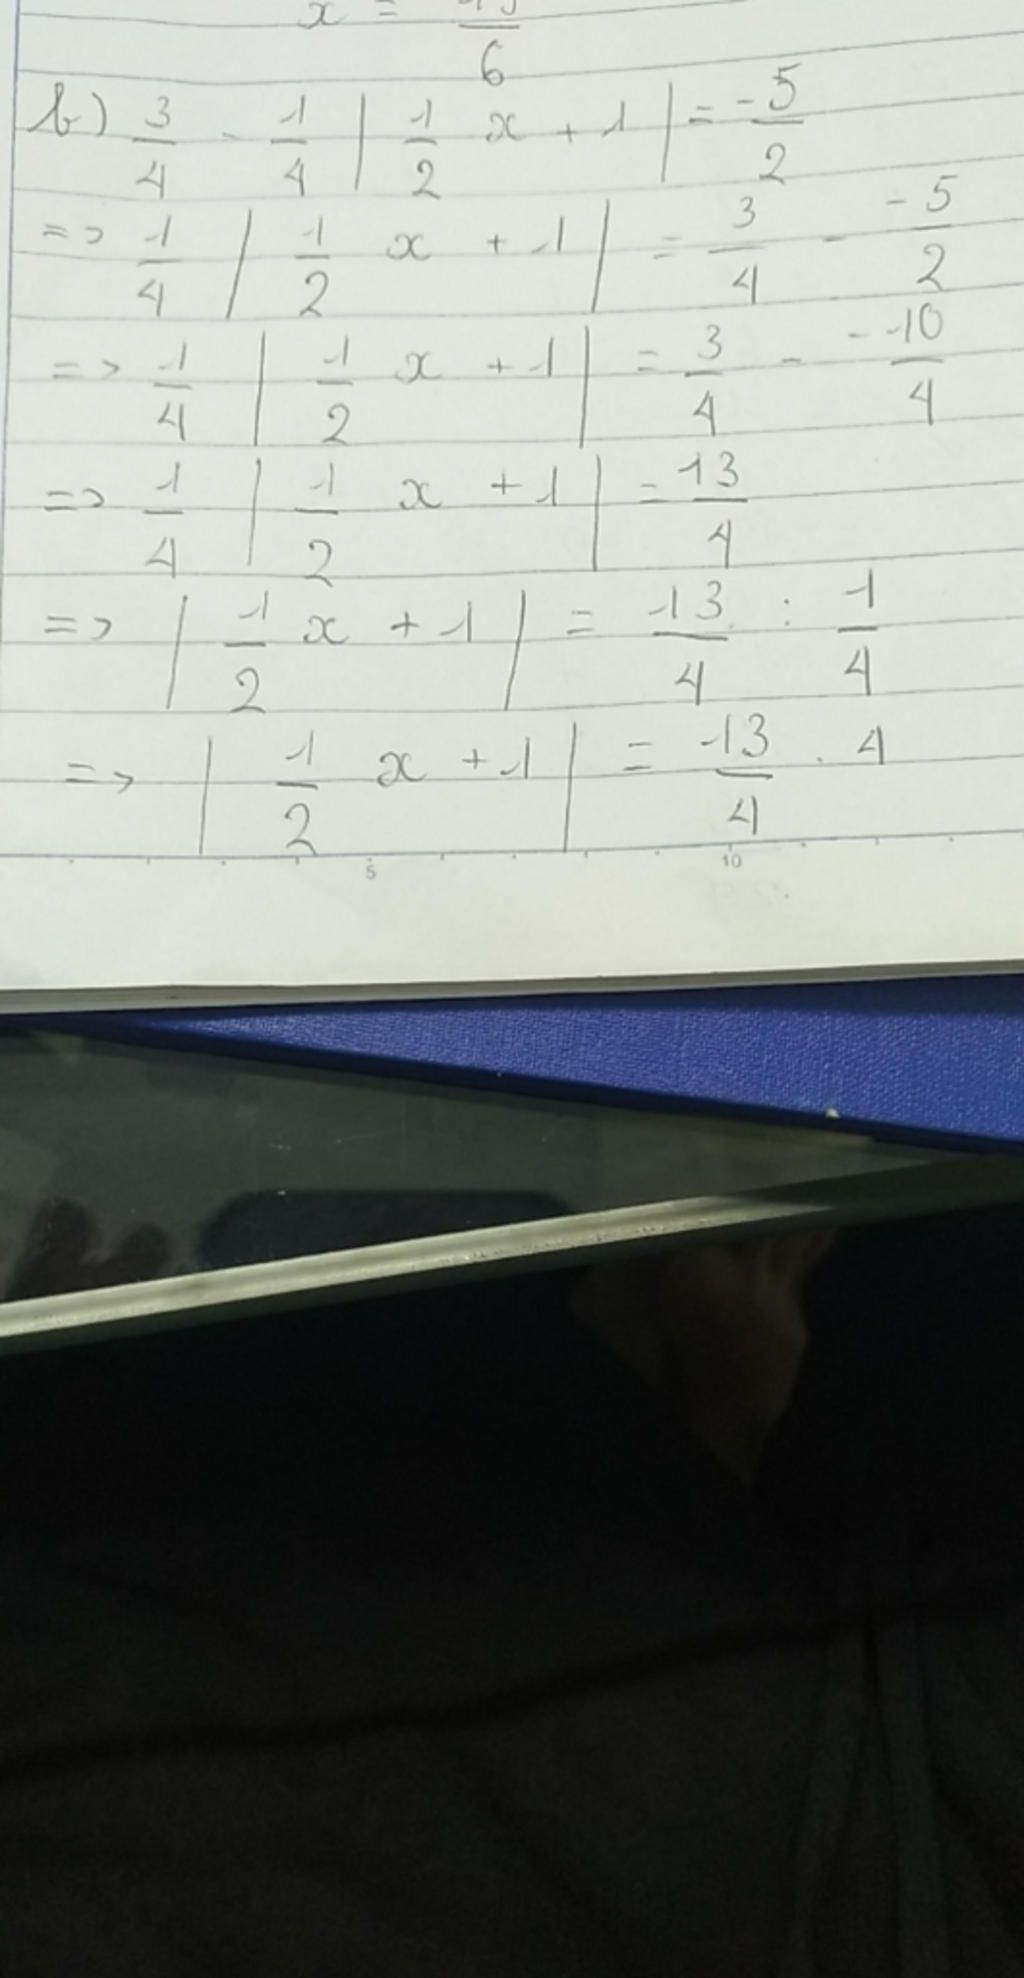 x = 
6
b) 3/4 - 1/4 | 1/2 x + 1 | = -5/2
=> 1/4 | 1/2 x + 1 | = 3/4 - -5/2
=> 1/4 | 1/2 x + 1 | = 3/4 - -10/4
=> 1/4 | 1/2 x + 1 | = 13/4
=> | 1/2 x + 1 | = 13/4 : 1/4
=> | 1/2 x + 1 | = 13/4 . 4
5 10